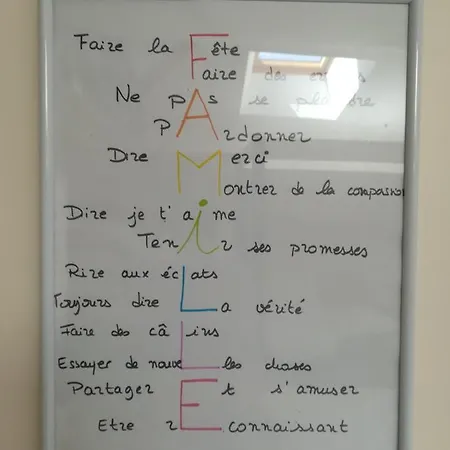 Faire la Fête
Faire des erreurs
Ne pAs se plaindre
pArdonner
Dire Merci
Montrer de la compassion
Dire je t'aime
Tenir ses promesses
Rire aux écLats
Toujours dire La vérité
Faire des câLins
Essayer de nouveLLes choses
Partager Et s'amuser
Etre rEconnaissant